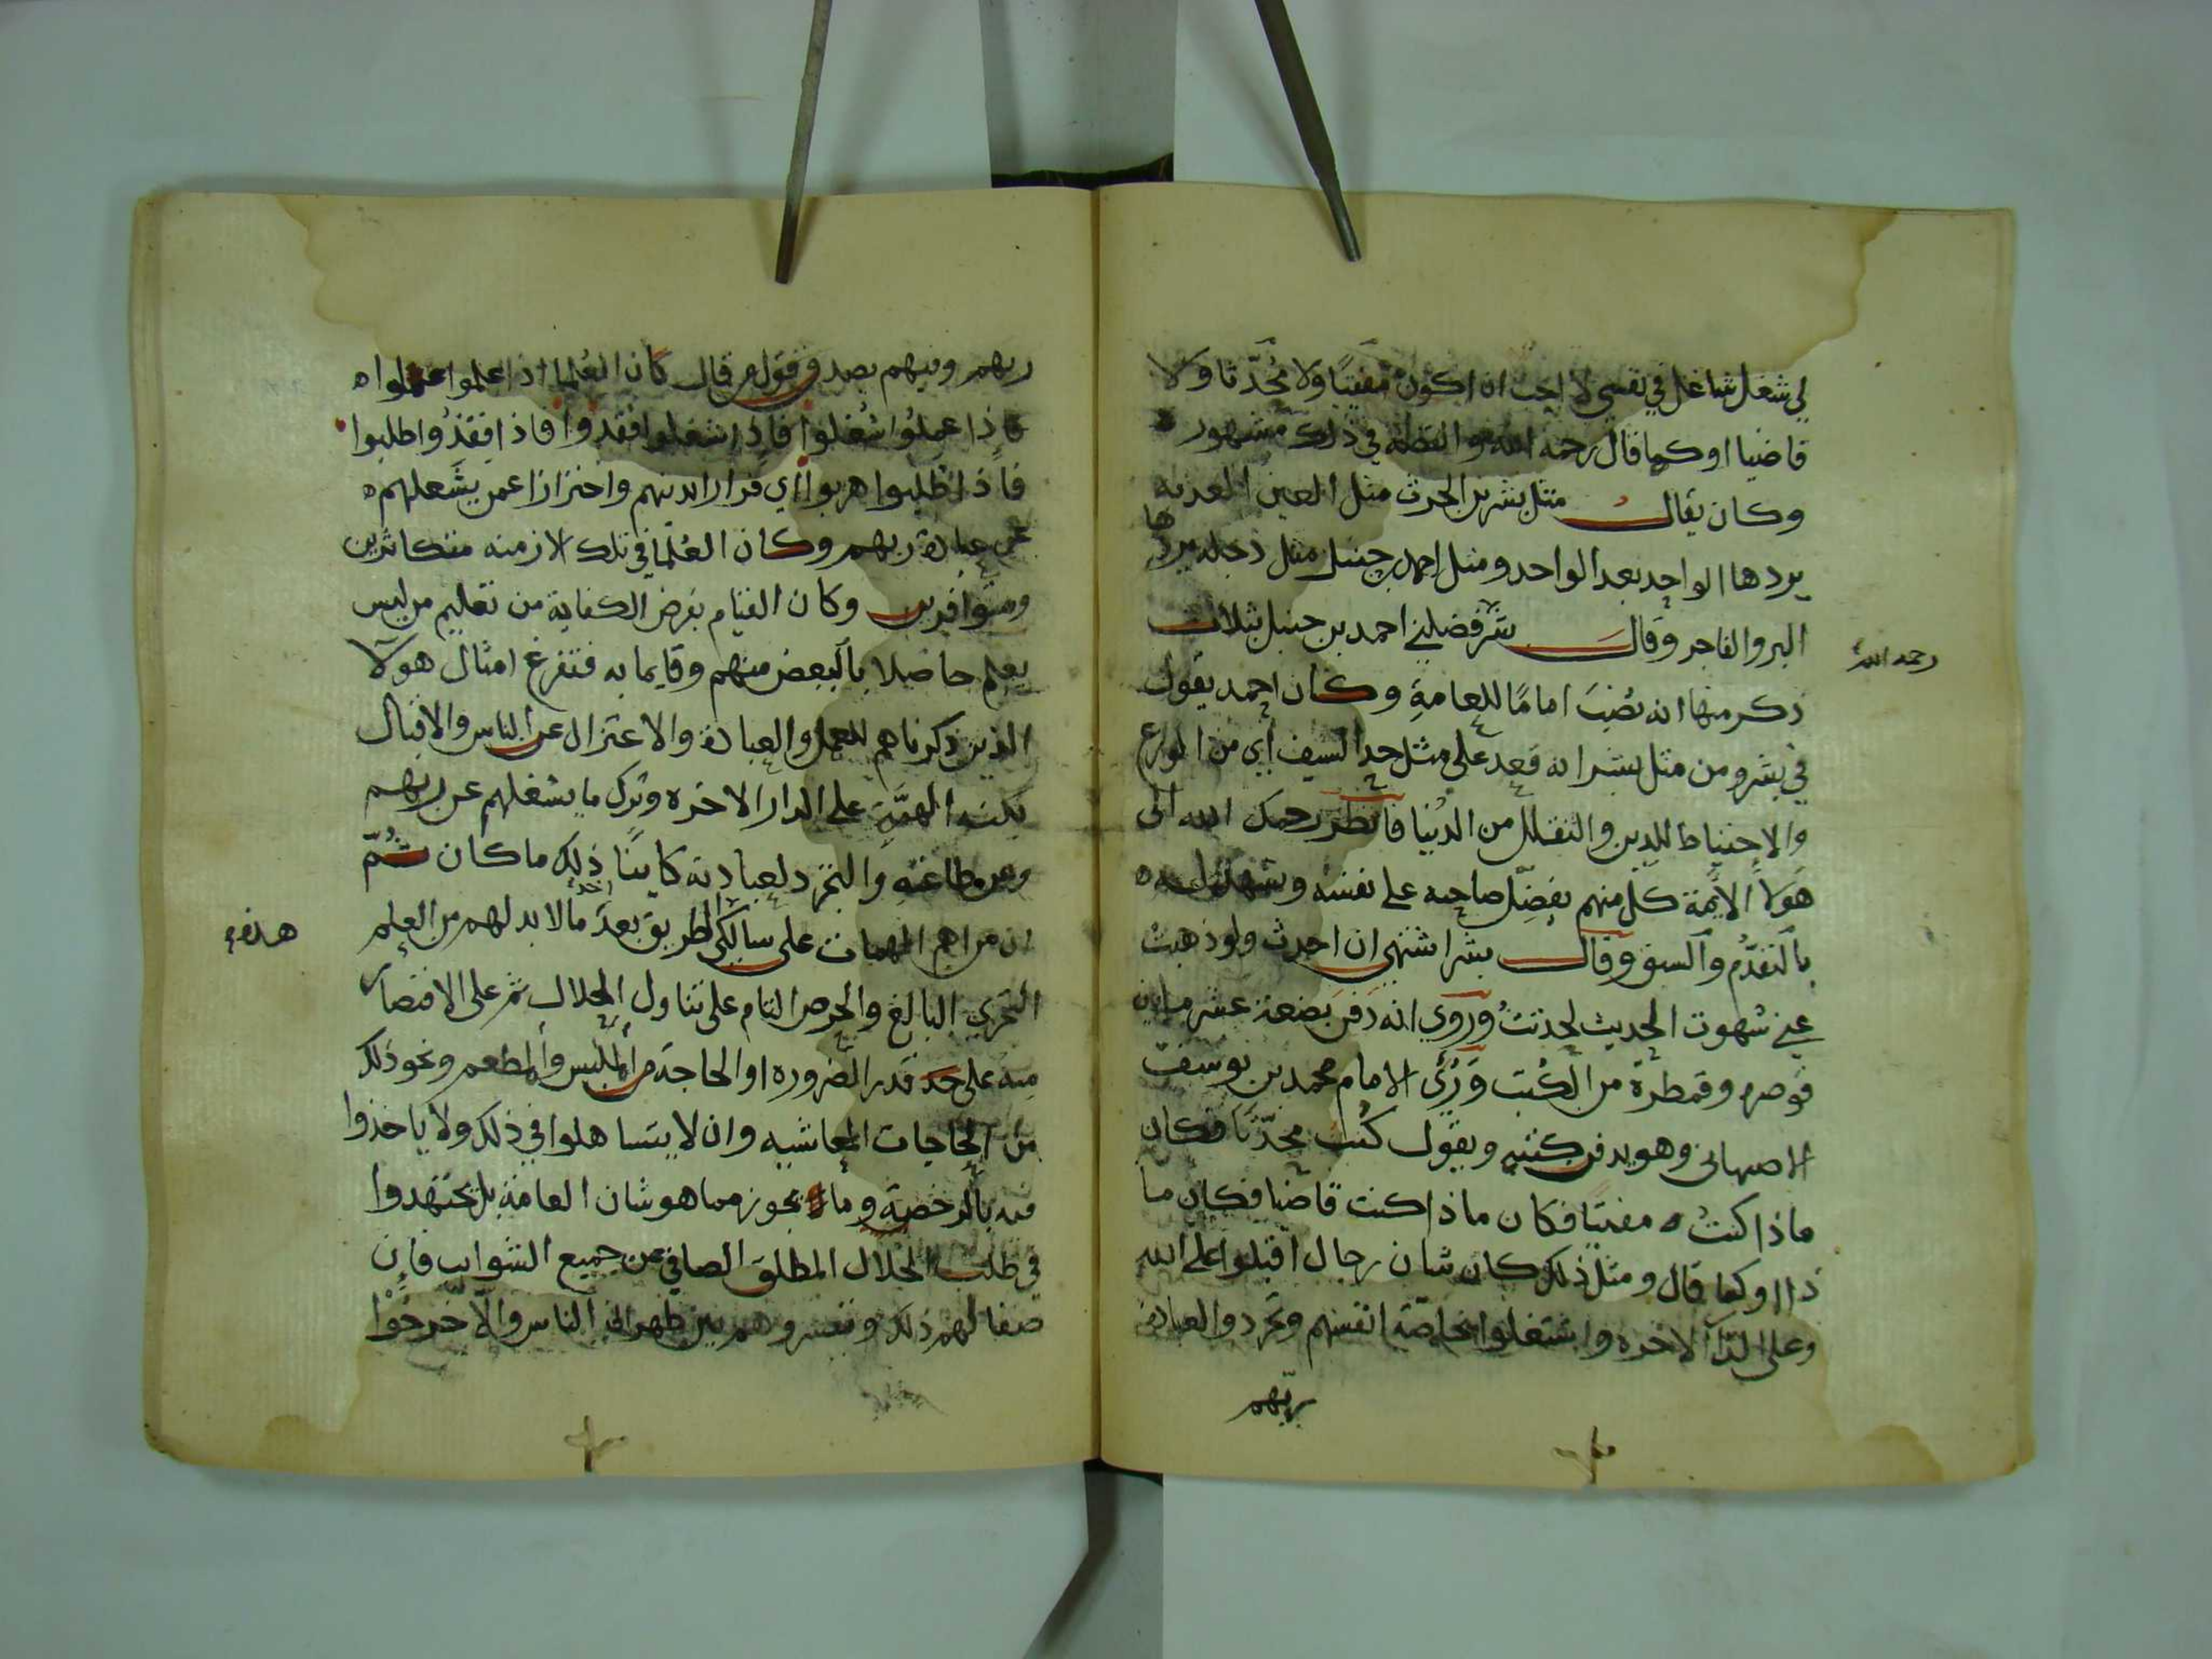 لي شغل شاغل في نفسي لا احب ان اكون مفتيًا ولا محدّثا ولا
قاضيا او كما قال رحمه الله والقصة في ذلك مشهور
وكان يقال مثل بشر بن الحرث مثل العين العذبه
يردها الواحد بعد الواحد ومثل احمد بن حنبل مثل دجله يردها
البر والفاجر وقال بشر فضلني احمد بن حنبل بثلاث
رحمه الله
ذكر منها انه نُصِبَ امامًا للعامةِ وكان احمد يقول
في بشر ومن مثل بشر انه قعد على مثل حد السيف أي من الورع
والاحتياط للدين والتقلل من الدُنيا فانظر رحمك الله الى
هَولاَ الائمة كل منهم يفضِّل صاحبه على نفسه ويشهد له
بالتقدُّم والسبق وقال بشر اشتهي ان احدث ولو ذهبت
عني شهوت الحديث لحدثتُ وروي انه دفن بضعة عشر مابين
قوصره وقمطرة من الكُتب وَرُئَى الامام محمد بن يوسف
الاصبهانى وهو يدفن كتبه ويقول كُنتُ محدّثا فكان
ماذا كنتُ مفتيًا فكان ماذا كنت قاضيا فكان ما
ذا او كما قال ومثل ذلك كان شان رجال اقبلوا على الله
وعلى الدار الاخره واشتغلوا بخاصّة انفسهم وتجردو العبادة
ربّهم
ربهم وفيهم يصدق قول من قال كان العُلما اذا علموا عملوا
فاذا عملُوا شُغلوا فاذا شغلوا فقدوا فاذا فقدُوا طلبوا
فاذا طلبوا هربوا أي فرارا بدينهم واحترازا عمن يشَغلهم
عن عبادة ربهم وكان العُلمَا في تلك الازمنه متكاثرين
ومتوافرين وكان القيام بفرض الكفاية من تعليم من ليس
يعلم حاصلا بالبعض منهم وقايما به فتفرغ امثال هولا
الذين ذكرناهم للعمل والعبادة والاعتزال عن الناس والاقبال
بكنه الهمَّةِ على الدار الاخره وترك ما يشغلهم عن ربهم
وعن طاعتهِ والتجرد لعبادته كاينًا ذلك ما كان ثُمّ
ان من اهم المهمات على سالكى الطريق بعدَ اخذ ما لا بد لهم من العلم
هذه
التحري البالغ والحرص التام على تناول الحلال ثم على الاقتصار
منه على حد قدر الضروره او الحاجة من الملبس والمطعم ونحو ذلك
من الحاجات المعاشيه وان لا يتساهلوا في ذلك ولا ياخذوا
فيه بالرخصة وما يجوز مما هو شان العامّة بل يجتهدوا
في طلب الحلال المطلق الصافي عن جميع الشوايب فان
صفا لهم ذلك وتيسر وهم بين ظهراني الناس والاّ خرجُوْا